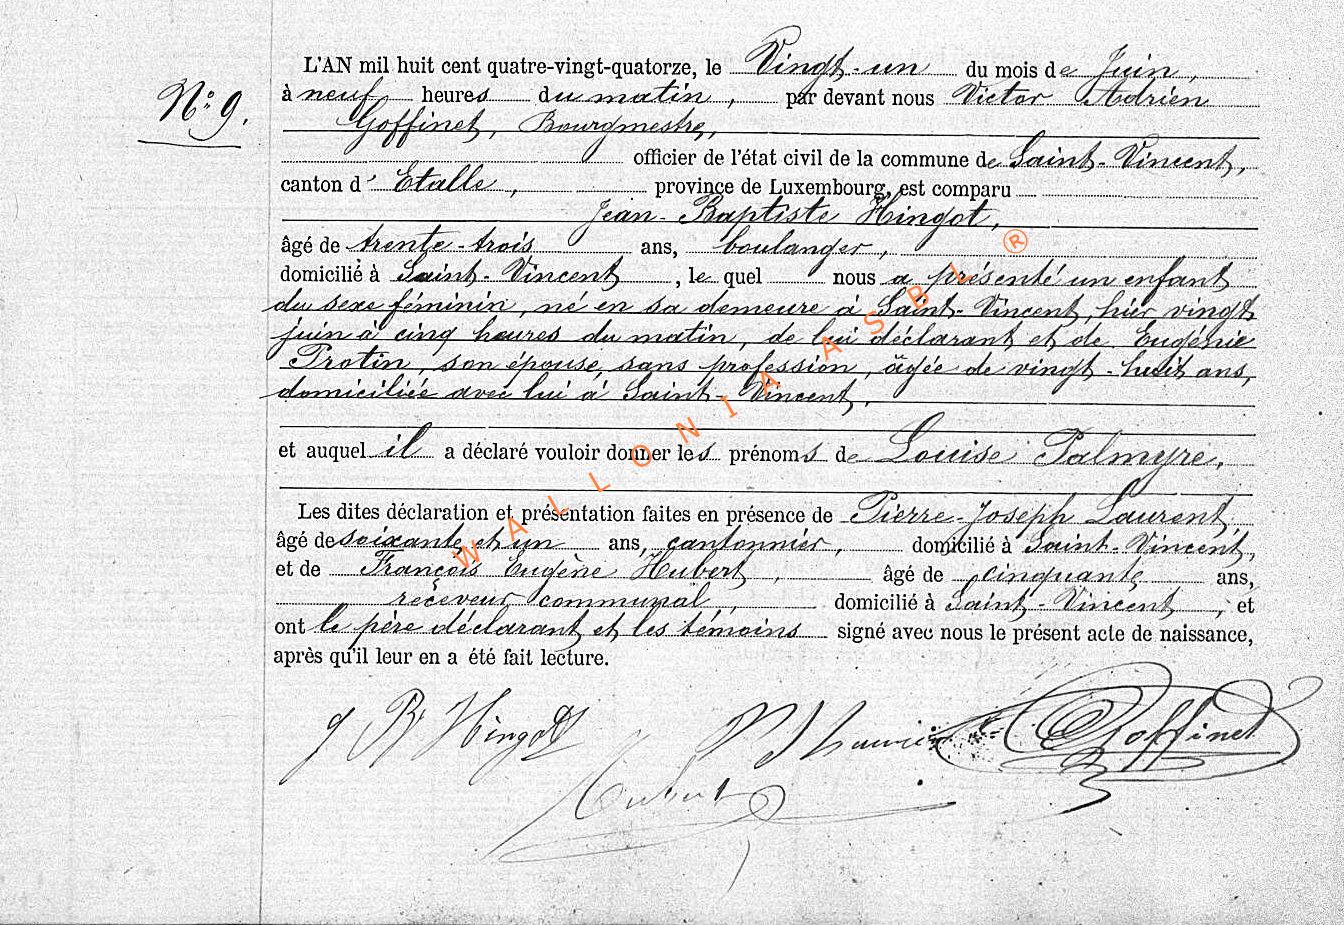 L'AN mil huit cent quatre-vingt-quatorze, le Vingt-un du mois de Juin,
N° 9.
à neuf heures du matin, par devant nous Victor Adrien
Goffinet, Bourgmestre,
officier de l'état civil de la commune de Saint-Vincent,
canton d' Etalle, province de Luxembourg, est comparu
Jean-Baptiste Hingot,
âgé de trente-trois ans, boulanger,
domicilié à Saint-Vincent, le quel nous a présenté un enfant
du sexe féminin, né en sa demeure à Saint-Vincent, hier vingt
juin à cinq heures du matin, de lui déclarant et de Eugénie
Protin, son épouse, sans profession, âgée de vingt-huit ans,
domiciliée avec lui à Saint-Vincent,
et auquel il a déclaré vouloir donner les prénoms de Louise Palmyre,
Les dites déclaration et présentation faites en présence de Pierre-Joseph Laurent,
âgé de soixante et un ans, cantonnier, domicilié à Saint-Vincent,
et de François Eugène Hubert, âgé de cinquante ans,
receveur communal, domicilié à Saint-Vincent, et
ont le père déclarant et les témoins signé avec nous le présent acte de naissance,
après qu'il leur en a été fait lecture.
J B Hingot P J Laurent Goffinet
Hubert
WALLONIA ASBL ®